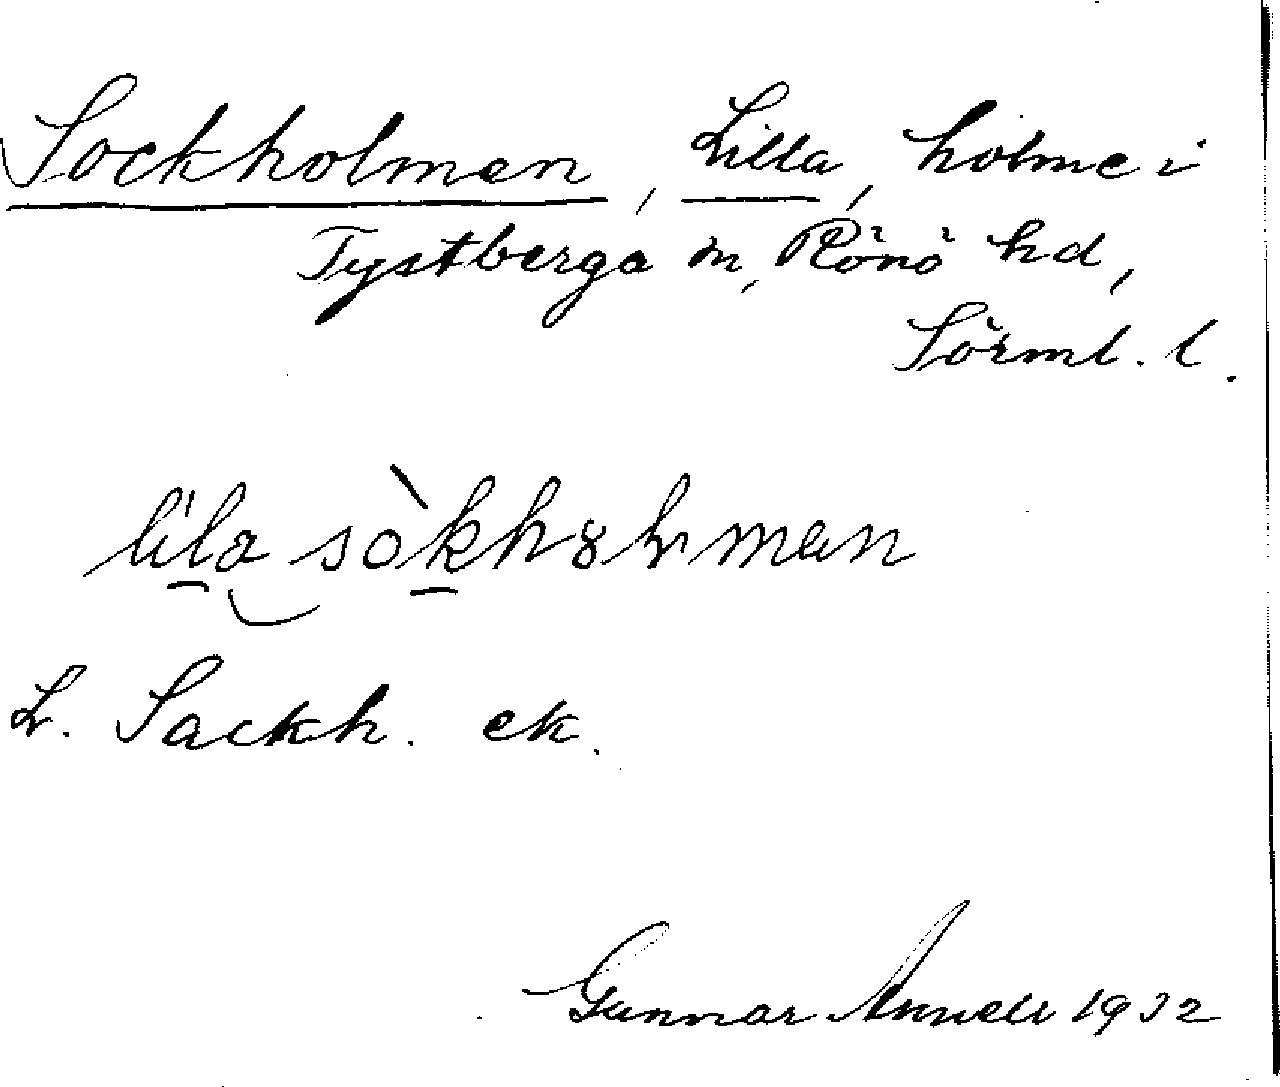 Sockholmen, Lilla, holme i
Tystberga sn, Rönö hd,
Sörml. l.
lila sòkholmen
L. Sackh. ek.
Gunnar Annell 1932